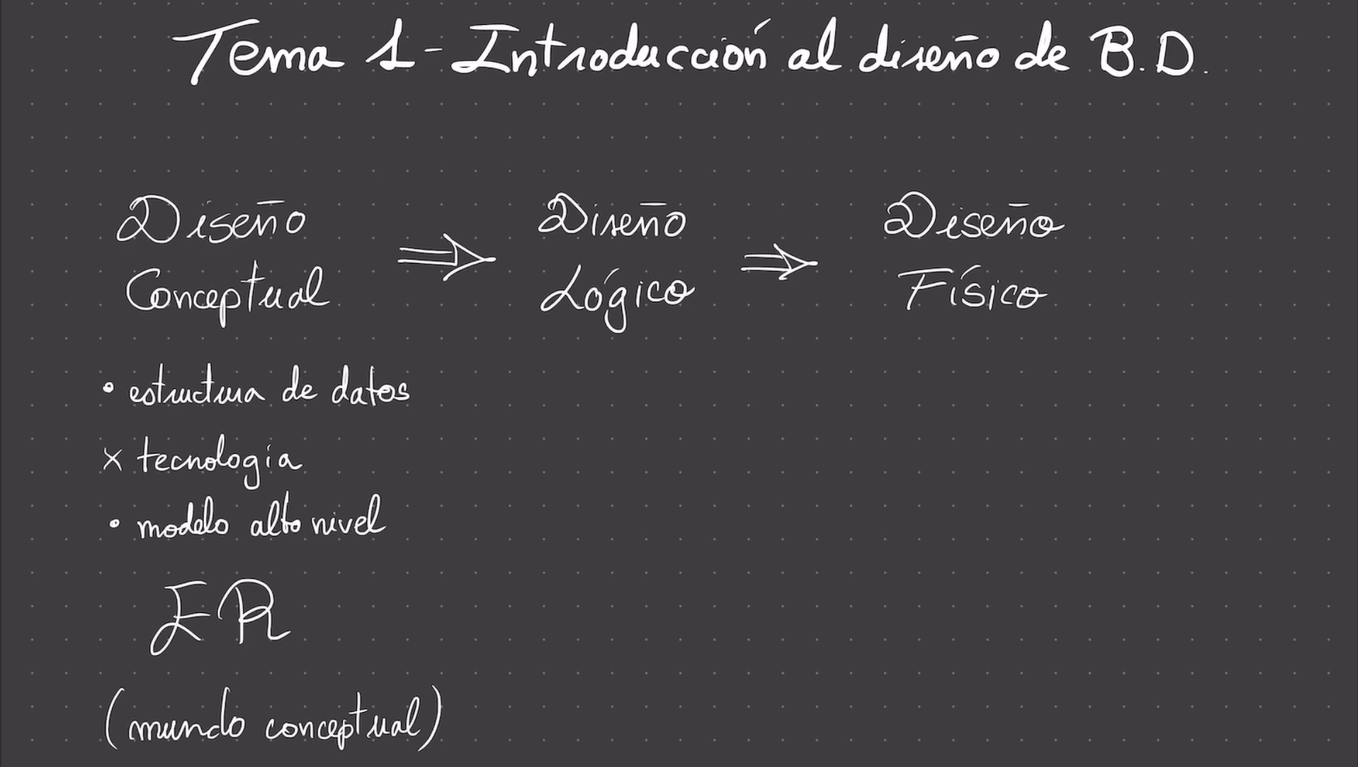 Tema 1 - Introducción al diseño de B.D.
Diseño Conceptual ⇒ Diseño Lógico ⇒ Diseño Físico
• estructura de datos
x tecnologia
• modelo alto nivel
ER
(mundo conceptual)